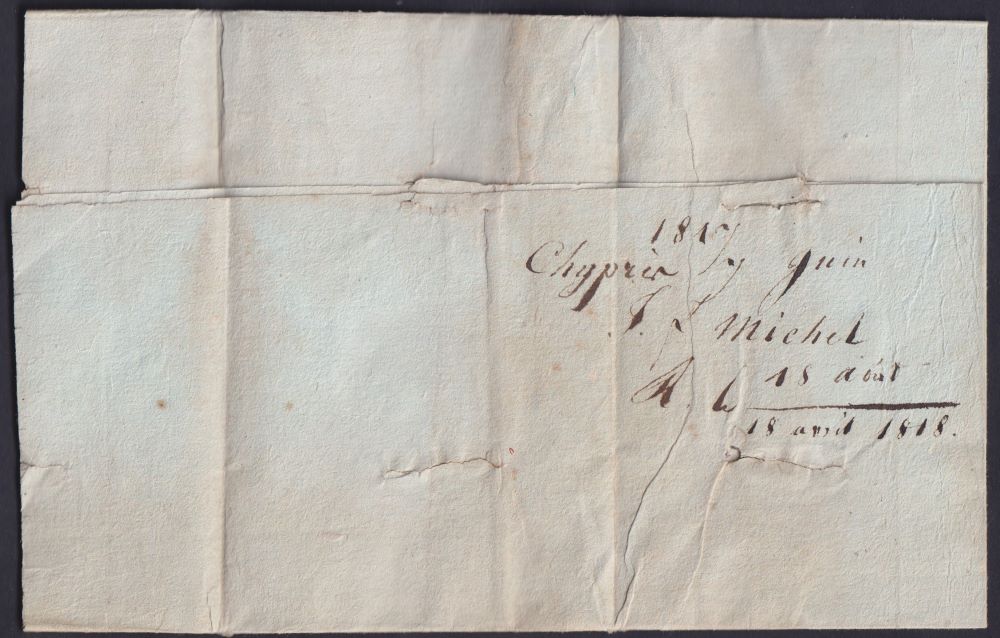 1817
Chypres 17 Juin
J. L Michel
R. le 18 août
18 avril 1818.